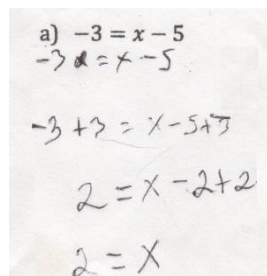 a) −3 = x − 5
-3 = x - 5
-3 + 3 = x - 5 + 3
2 = x - 2 + 2
2 = x